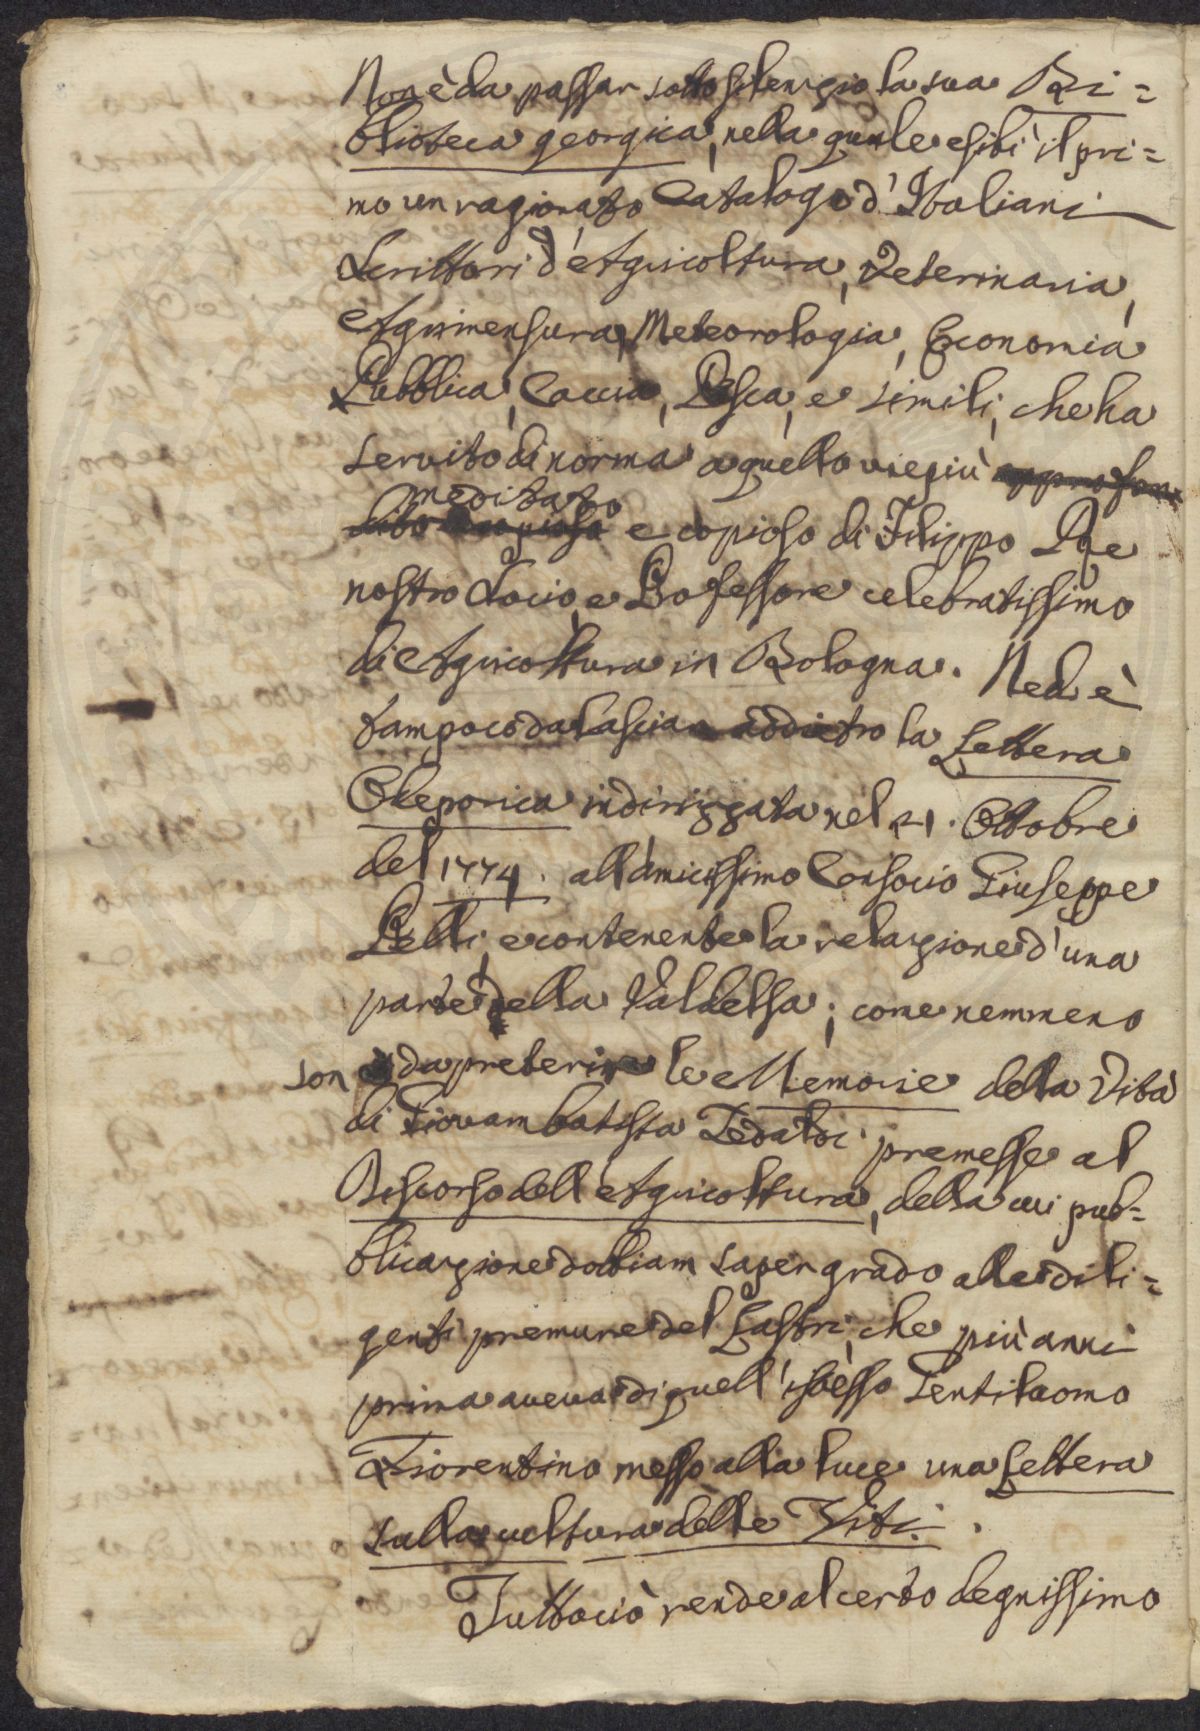 Non è da passar sotto silenzio la sua Bi=
blioteca georgica, nella quale esibì il pri=
mo un ragionato Catalogo d'Italiani
Scrittori d'Agricoltura, Veterinaria,
Agrimensura, Meteorologia, Economia
Pubblica, Caccia, Pesca, e simili, che ha
servito di norma a quello viepiù approfon
meditato
dito e copioso e copioso di Filippo Re
nostro Socio, e Professore celebratissimo
di Agricoltura in Bologna. Ned è
tampoco da lasciar addietro la Lettera
Odeporica indirizzata nel 21. Ottobre
del 1774. all'amicissimo Consocio Giuseppe
Pelli, e contenente la relazione d'una
parte della Valdelsa; come nemmeno
son da preterire le Memorie della Vita
di Giovambatista Tedaldi premesse al
Discorso dell'Agricoltura, della cui pub=
blicazione dobbiam saper grado alle dili=
genti premure del Lastri, che più anni
prima aveva di quell'istesso Gentiluomo
Fiorentino messo alla luce una Lettera
sulla cultura delle Viti.
Tuttociò rende al certo degnissimo